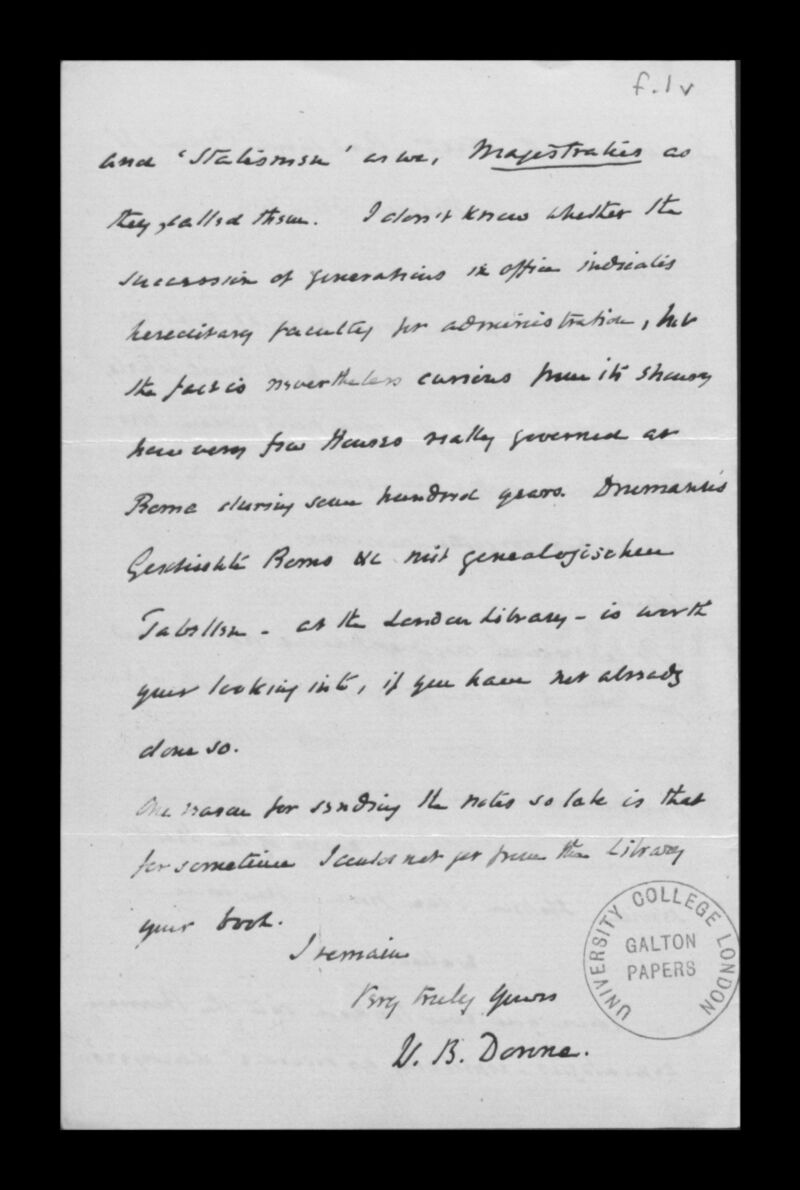 f.1v
and 'Statesmen' as we, Magistraties as
they called them. I don't know whether the
succession of generations in office indicates
hereditary faculty for administration, but
the fact is nevertheless curious from its shewing
how very few Houses really governed at
Rome during seven hundred years. Drumann's
Geschichte Roms &c mit genealogischen
Tabellen - at the London Library - is worth
your looking into, if you have not already
done so.
One reason for sending the notes so late is that
for sometime I could not get from the Library
your book.
I remain
Very truly Yours
W. B. Donne.
UNIVERSITY COLLEGE LONDON
GALTON
PAPERS